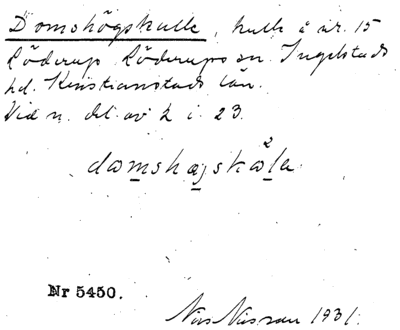 Domshögskulle, kulle å nr. 15
Löderup Löderups sn. Ingelstads
hd. Kristianstads län.
Vid n. del. av k i. 23.
damshøgskåla
Nr 5450.
Nils Nilsson 1931.